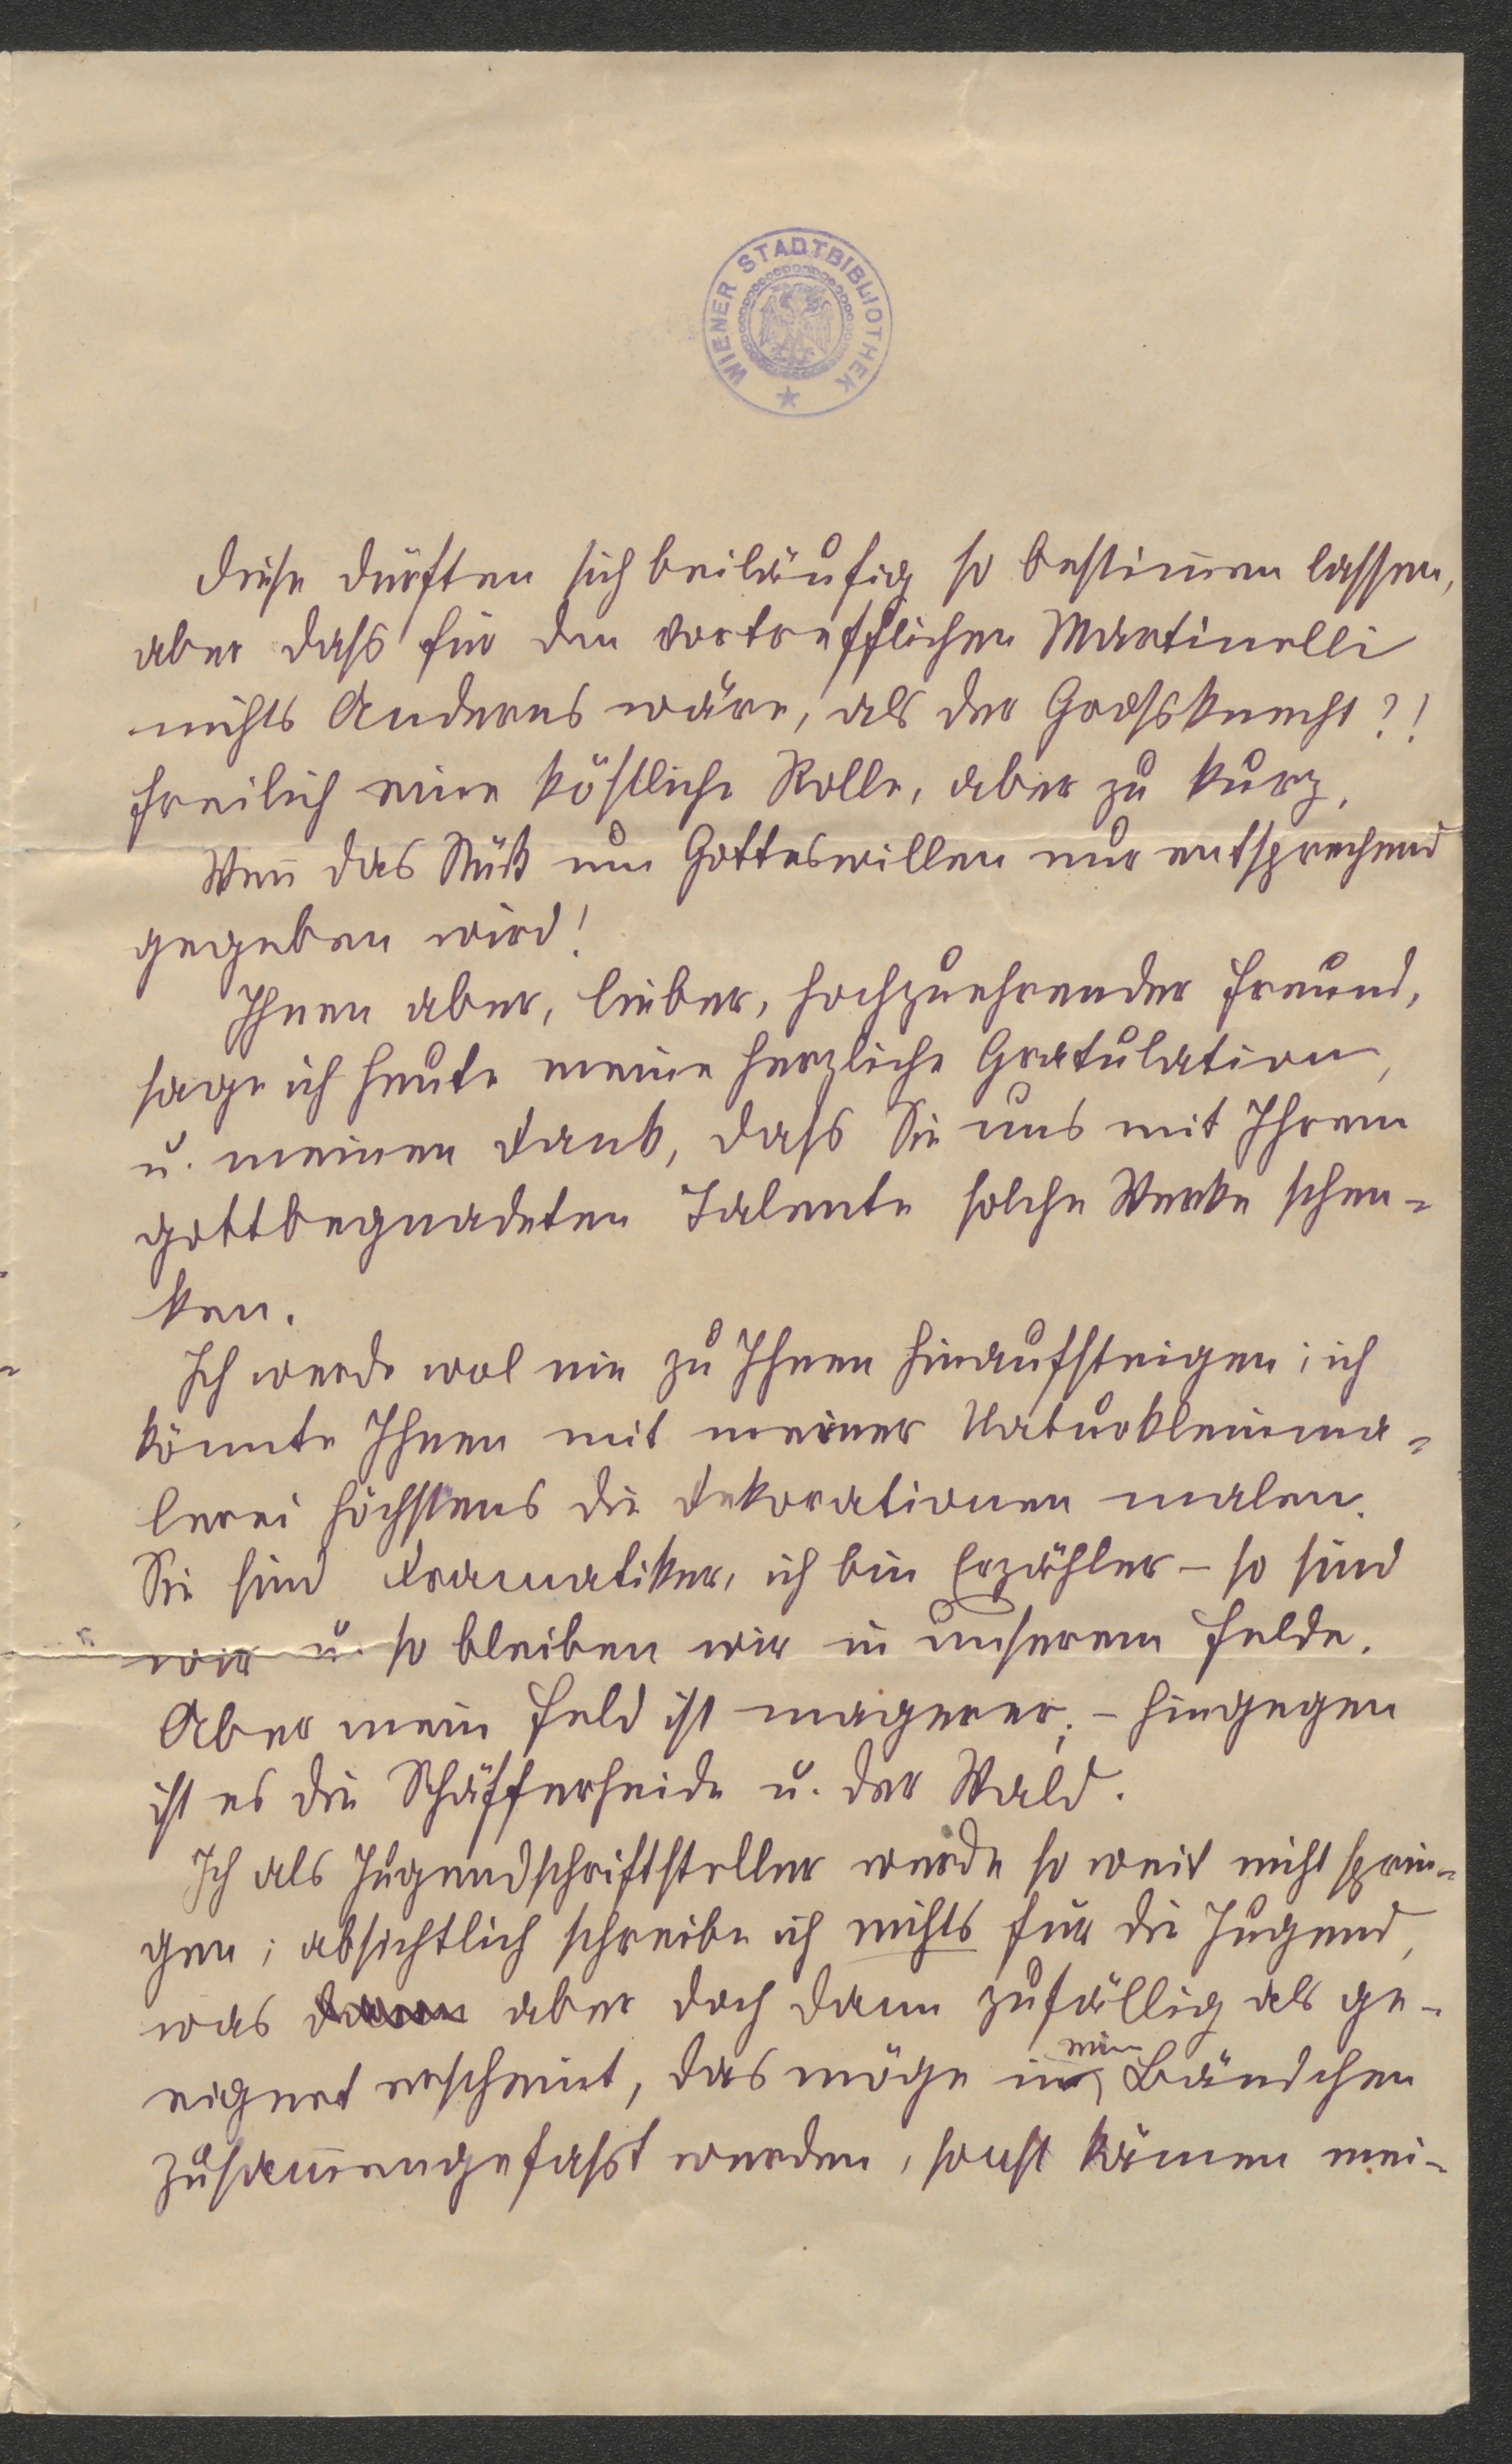 WIENER STADTBIBLIOTHEK
Diese dürften sich beiläufig so bestim̄en lassen,
aber dass für den vortrefflichen Martinelli
nichts Anderes wäre, als der Grossknecht?!
Freilich eine köstliche Rolle, aber zu kurz,
Wen̄ das Stück um Gotteswillen nur entsprechend
gegeben wird!
Ihnen aber, lieber, hochzuehrender Freund,
sage ich heute meine herzliche Gratulation,
u. meinen Dank, dass Sie uns mit Ihrem
gottbegnadeten Talente solche Werke schen-
ken.
Ich werde wol nie zu Ihnen hinaufsteigen; ich
könnte Ihnen mit meiner Naturkleinma-
lerei höchstens die Dekorationen malen.
Sie sind Dramatiker, ich bin Erzähler – so sind
wir u. so bleiben wir in unserem Felde.
Aber mein Feld ist magerer; – hingegen
ist es die Schäfferheide u. der Wald.
Ich als Jugendschriftsteller werde so weit nicht sprin-
gen; absichtlich schreibe ich nichts für die Jugend,
was dann aber doch dann zufällig als ge-
eignet erscheint, das möge in ein Bändchen
zusam̄engefasst werden, sonst kämen mei-